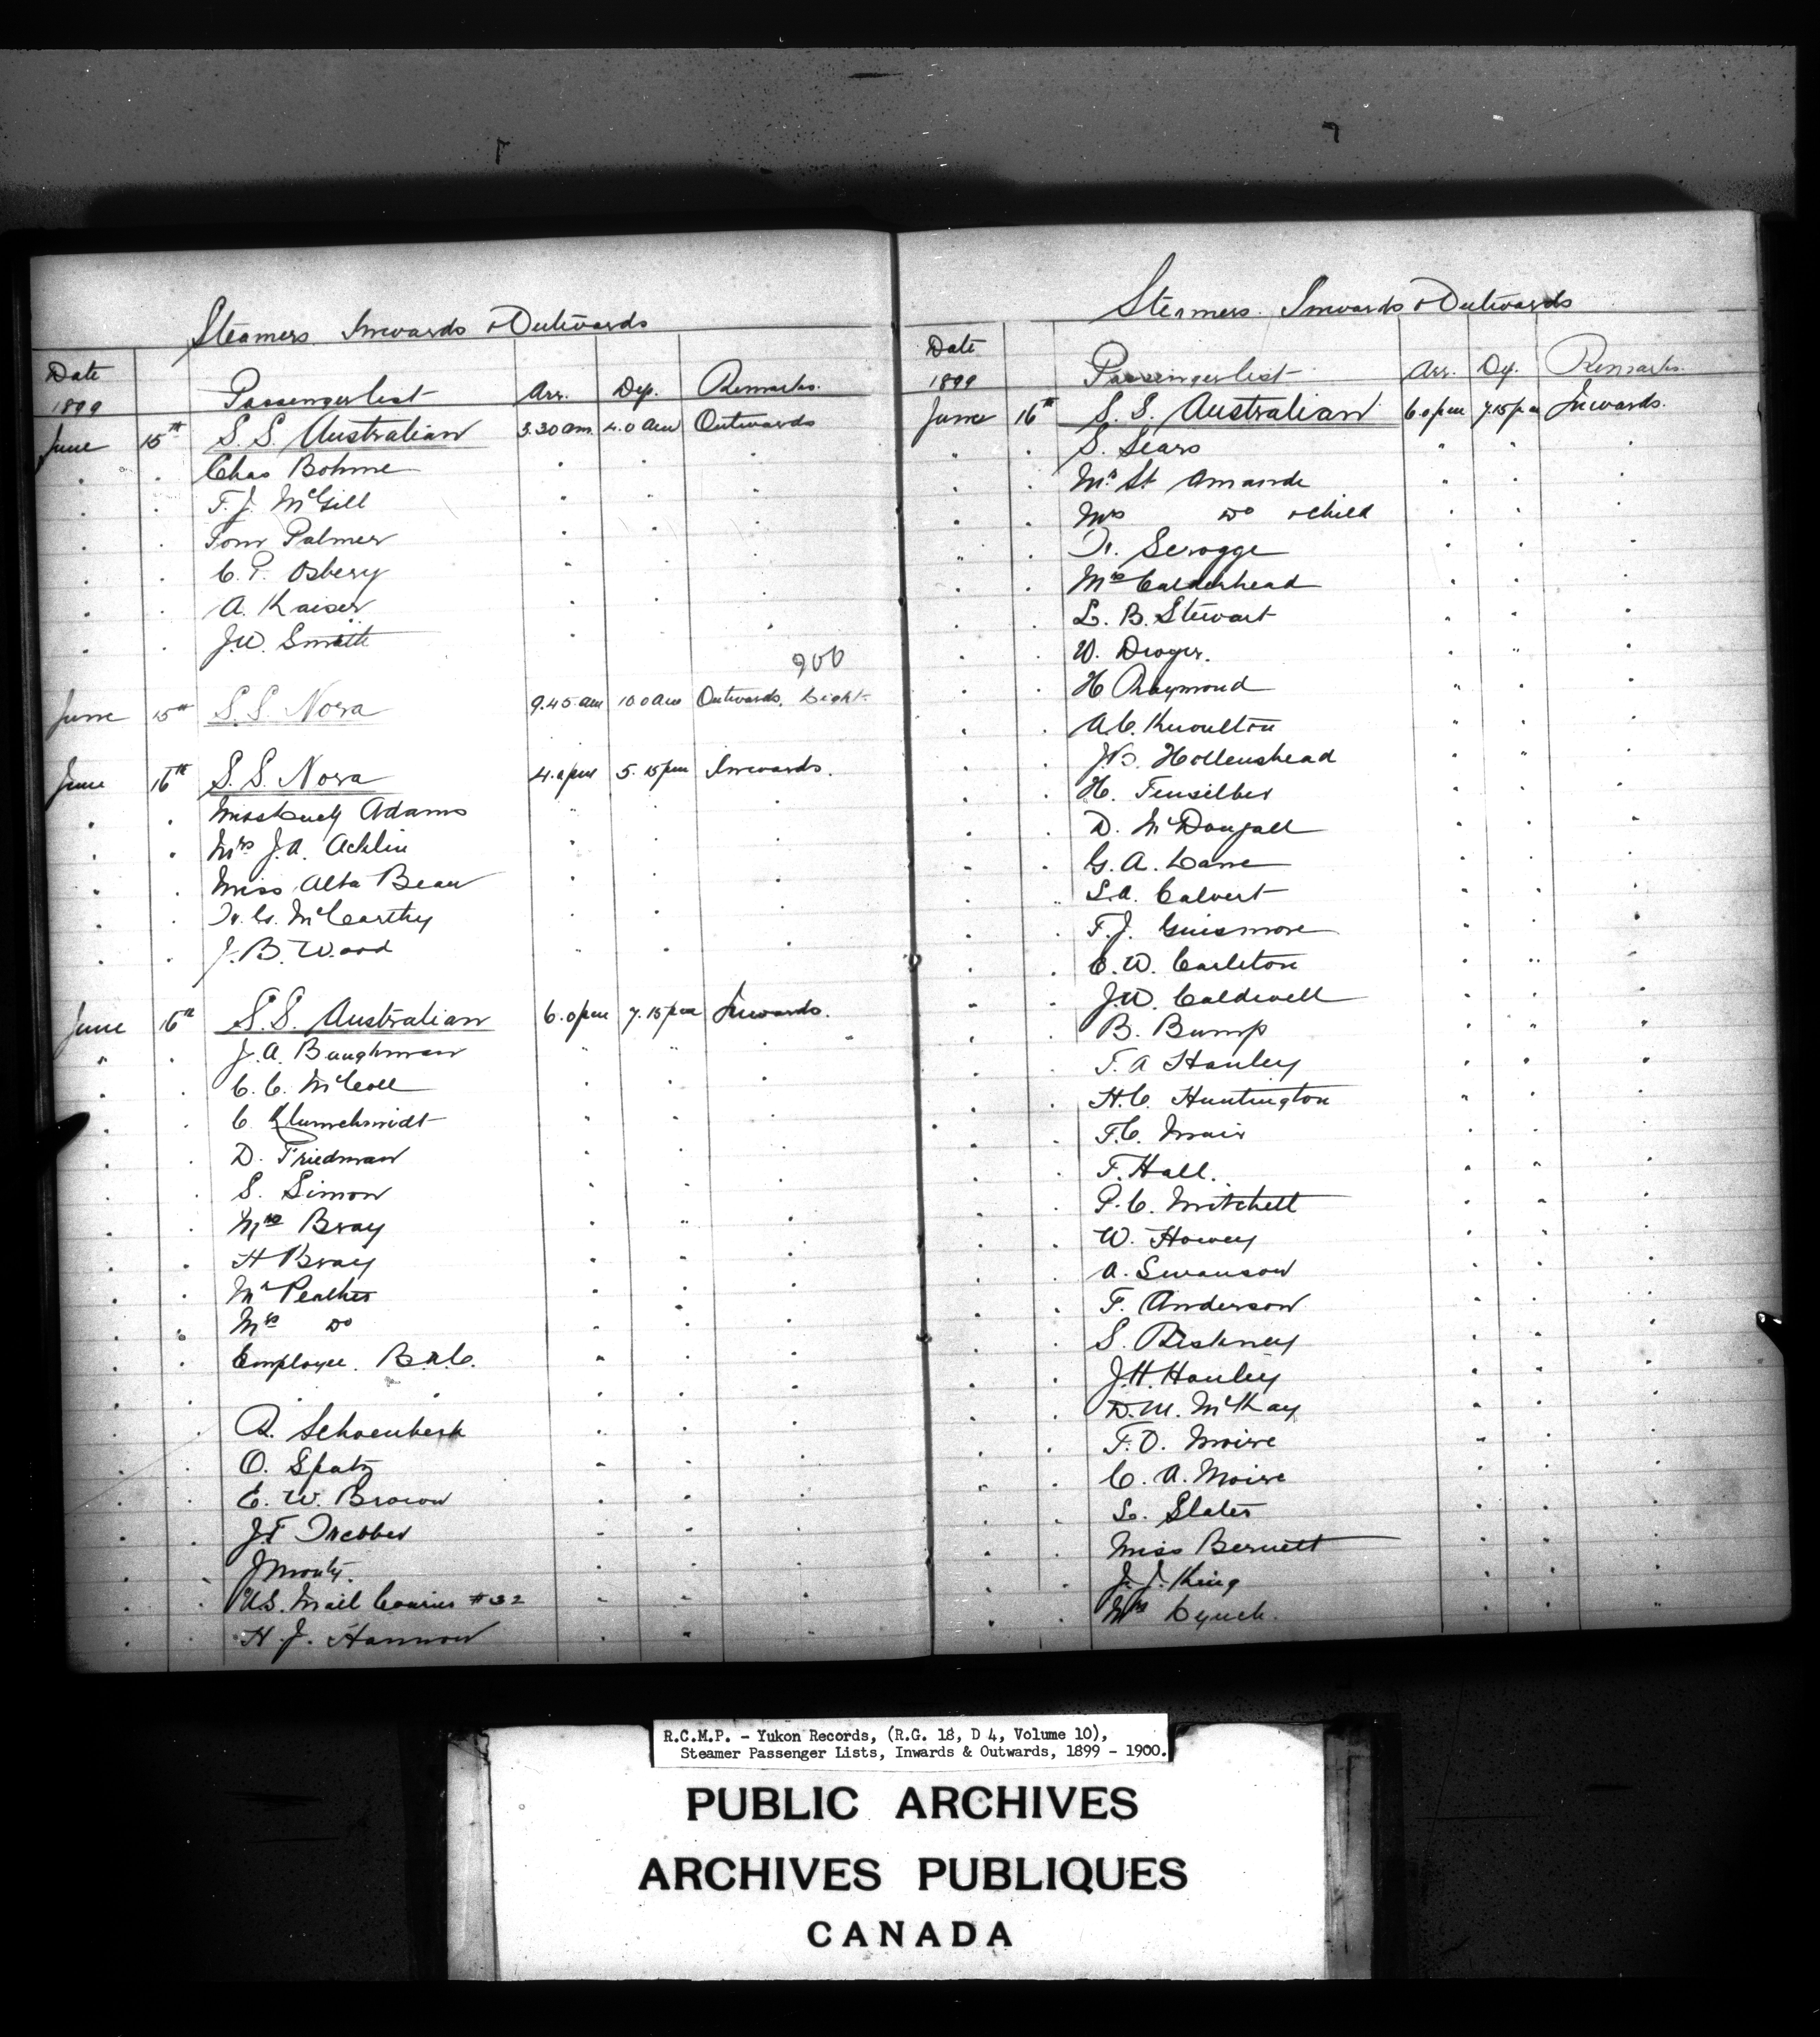 Steamers Inwards & Outwards
Date
1899 Passenger list Arr. Dep. Remarks.
June 15th S.S. Australian 3.30 am 4.0 am Outwards
Chas Bohme
F. J. McGill
Tom Palmer
C. P. Osbery
A. Kaiser
J.W. Smith
900
June 15th S.S. Nora 9.45 am 10.0 am Outwards. Light.
June 16th S.S. Nora 4.0 pm 5.15 pm Inwards.
Miss Lucy Adams
Mrs J.A. Acklin
Miss Alta Bean
McCarthy
J. B. Wood
June 16th S.S. Australian 6.0 pm 7.15 pm Inwards.
J. A. Baughman
C. C. McColl
C. Klumschmidt
D. Friedman
S. Simon
Mrs Bray
H Bray
Mr
Mrs Do
Employee.
Schoenberk
O. Spatz
E. W. Brown
J.F.
J
U.S. Mail Courier #32
H. J. Hannon
Steamers. Inwards & Outwards
Date
1899 Passenger list Arr. Dep. Remarks.
June 16th S.S. Australian 6.0 pm 7.15 pm Inwards.
S. Sears
Mr St Amande
Mrs Do & child
Scrogge
Mrs Calderhead
L. B. Stewart
W.
H Raymond
A.C. Knoulton
Hollenshead
H. Tensilber
D. McDougall
G. A. Lane
L.A. Calvert
F. J. Ginsmore
E. W. Carleton
J.W. Caldwell
B. Bump
T. A Hanley
H.C. Huntington
F.C. Muir
F. Hall.
P. C. Mitchell
W. Howey
A. Swanson
F. Anderson
S.
J. H. Hanley
D. M. McKay
F. O. Moire
C. A. Moire
Slater
Miss Bernett
J. J. King
Mrs Lynch.
R.C.M.P. - Yukon Records, (R.G. 18, D 4, Volume 10),
Steamer Passenger Lists, Inwards & Outwards, 1899 - 1900.
PUBLIC ARCHIVES
ARCHIVES PUBLIQUES
CANADA